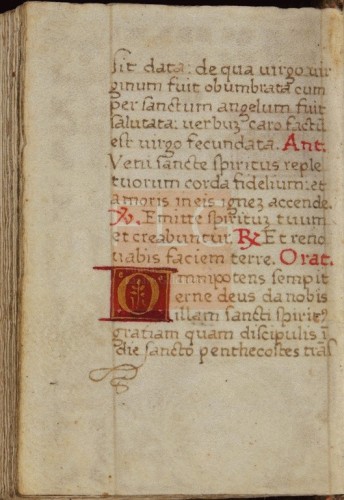 sit data: de qua virgo uir
ginum fuit obumbrata cum
per sanctum angelum fuit
salutata: uerbuz caro factū
est virgo fecundata. Ant.
Veni sancte spiritus reple
tuorum corda fidelium: et
amoris in eis ignez accende.
℣. Emitte spirituz tuum
et creabuntur. ℞ Et reno
uabis faciem terre. Orat.
Omnipotens sempit
erne deus da nobis
illam sancti spirit9
gratiam quam discipulis ī
die sancto penthecostes